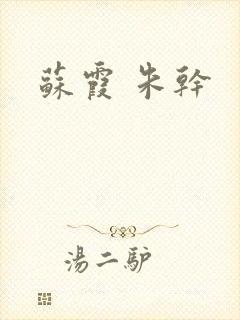 蘇霞 朱幹
湯二驴